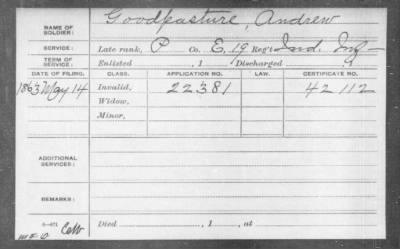 NAME OF SOLDIER: Goodpasture, Andrew
SERVICE: Late rank, P Co. E, 19 Reg't Ind. Inf
TERM OF SERVICE: Enlisted , 1 Discharged
DATE OF FILING. CLASS. APPLICATION NO. LAW. CERTIFICATE NO.
1863 May 14 Invalid, 22381 42112
Widow,
Minor,
ADDITIONAL SERVICES:
REMARKS:
Died , 1 , at